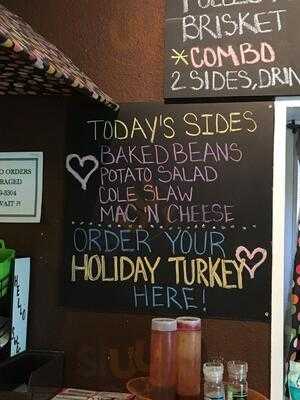 BRISKET
*COMBO
2 SIDES, DRIN
TODAY'S SIDES
BAKED BEANS
POTATO SALAD
COLE SLAW
MAC 'N CHEESE
ORDER YOUR
HOLIDAY TURKEY
HERE!
ORDERS
RAGED
-5304
WAIT ?!
HELLO